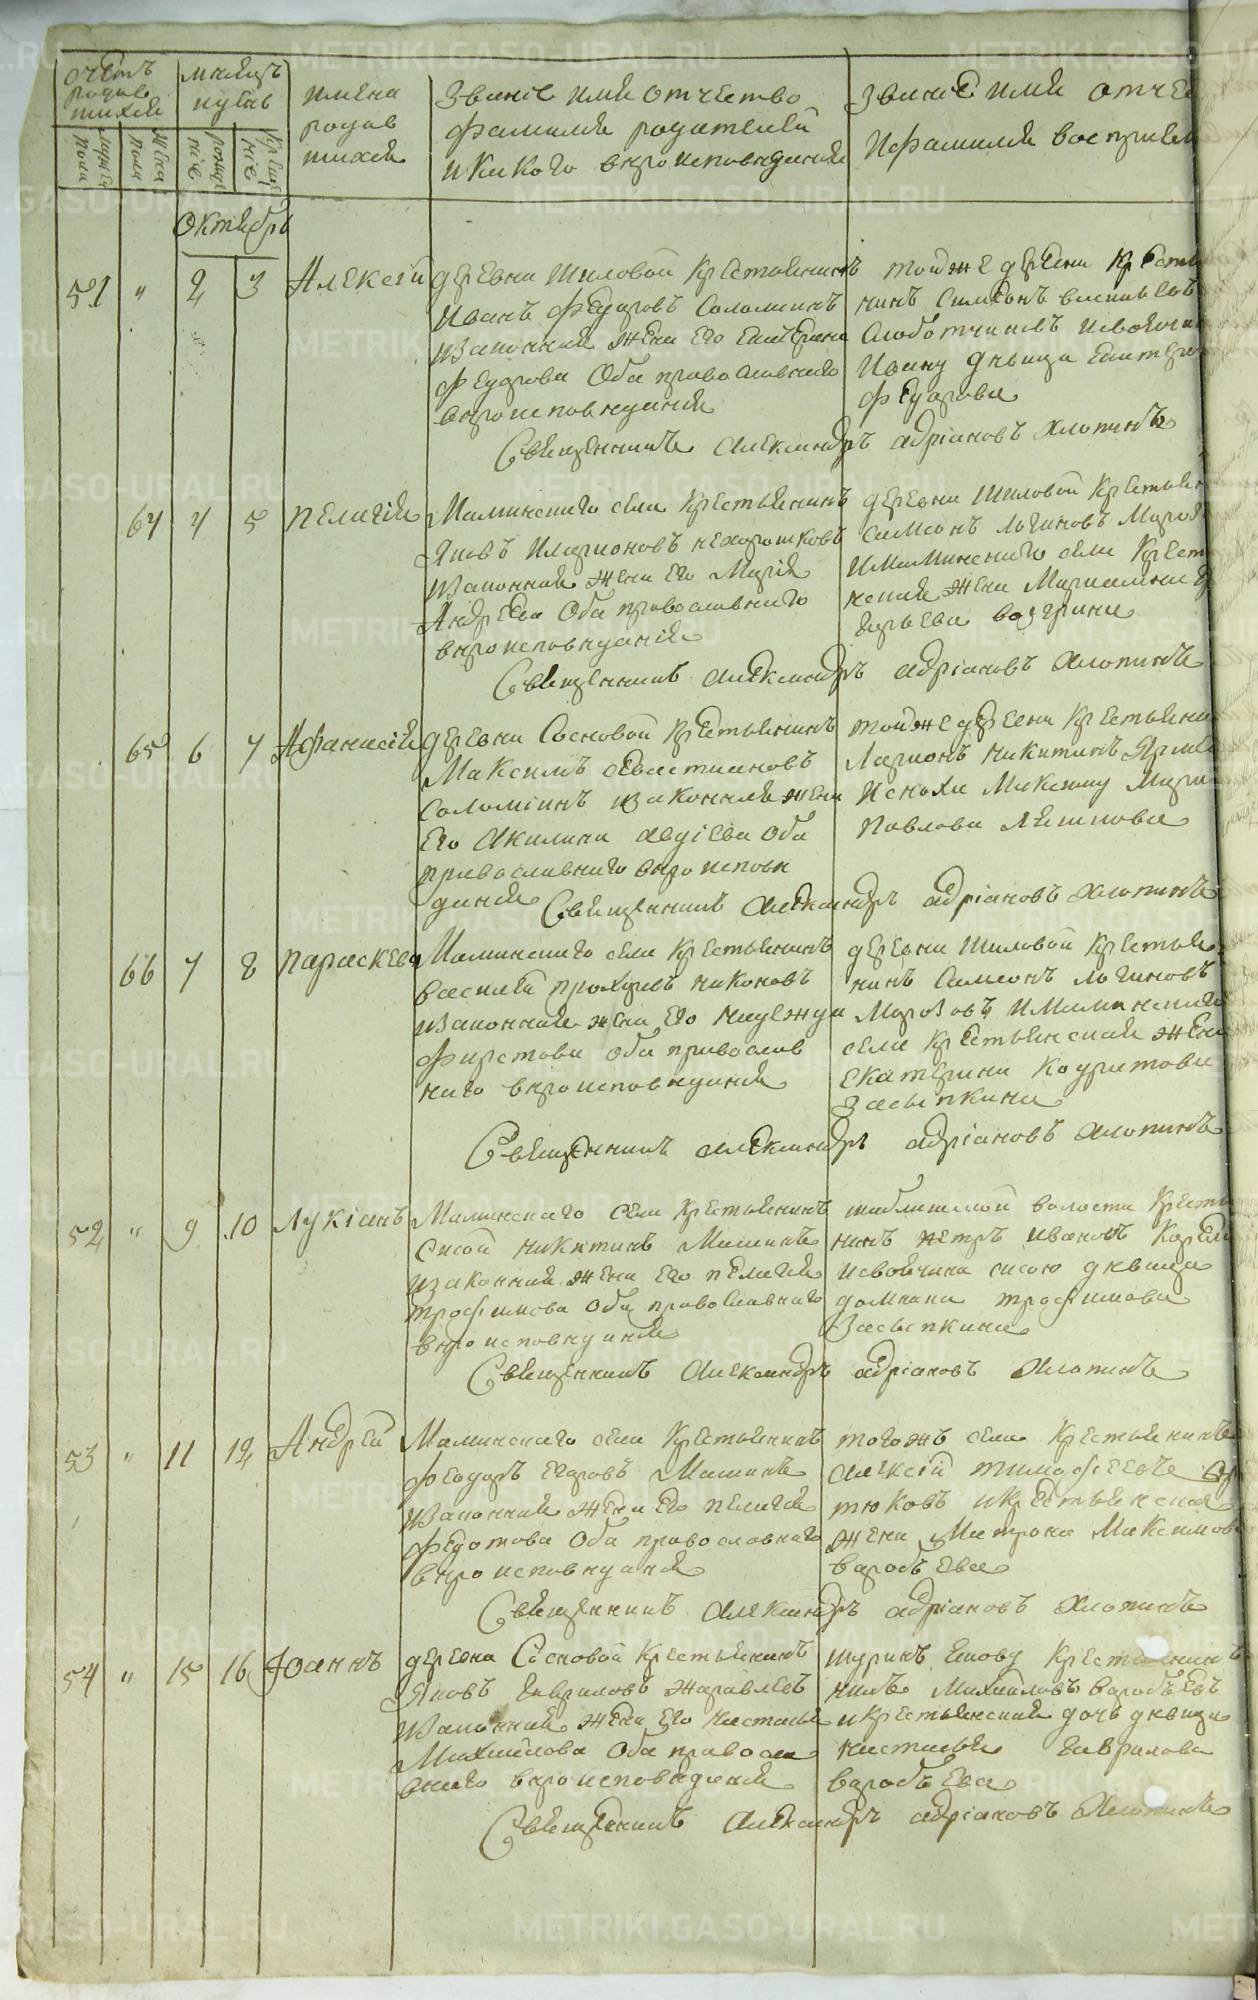 счетъ родив шихся
мужеска пола
женска пола
месяцъ и день
рожде ніе
креще ніе
имена родив шихся
Званіе имя отчество
фамилія родителей
и какого вероисповеданія
Званіе имя отчес
и фамилія восприем
Октябрь
51 " 2 3 Алексей
деревни Шиловой крестьянинъ
Иванъ Федоровъ Соломинъ
и законная жена его Екатерина
Федорова оба православнаго
вероисповеданія
тойже деревни кресть
нинъ Симеонъ Васильевъ
Слободчиковъ и своячина
Ивану девица Екатерина
Федорова
Священникъ Александръ Адріановъ Хлопинъ
64 4 5 Пелагія
Маминскаго села крестьянинъ
Яковъ Иларионовъ Нехорошковъ
и законная жена его Марія
Андреева оба православнаго
вероисповеданія
деревни Шиловой крестьян
Самсонъ Логиновъ Мороз
и Маминскаго села крест
нская жена Мариамна
Гурьева
Священникъ Александръ Адріановъ Хлопинъ
65 6 7 Афанасія
деревни Сосновой крестьянинъ
Максимъ Севастиановъ
Соломинъ и законная жена
его Акилина Авдіева оба
православнаго вероиспове
данія
тойже деревни крестьяни
Ларионъ Никитинъ
и сноха Максиму Мари
Павлова
Священникъ Александръ Адріановъ Хлопинъ
66 7 8 Параскева
Маминскаго села крестьянинъ
Василей Прохоровъ Никоновъ
и законная жена его Надежда
Фирстова оба православ
наго вероисповеданія
деревни Шиловой крестья
нинъ Самсонъ Логиновъ
Морозовъ и Маминскаго
села крестьянская жена
Екатерина Кодратова
Засыпкина
Священникъ Александръ Адріановъ Хлопинъ
52 " 9 10 Лукіанъ
Маминскаго села крестьянинъ
Сысой Никитинъ Машинъ
и законная жена его Пелагія
Трофимова оба православнаго
вероисповеданія
шаблишской волости кресть
нинъ Петръ Ивановъ Корел
и своячина Сысою девица
Домнина Трофимова
Засыпкина
Священникъ Александръ Адріановъ Хлопинъ
53 " 11 12 Андрей
Маминскаго села крестьянинъ
Феодоръ Егоровъ Машинъ
и законная жена его Пелагія
Федотова оба православнаго
вероисповеданія
тогожъ села крестьянинъ
Алексій Тимофеевъ
тюковъ и крестьянская
жена Матрона Максимова
Варобьева
Священникъ Александръ Адріановъ Хлопинъ
54 " 15 16 Іоаннъ
деревни Сосновой крестьянинъ
Яковъ Гавриловъ Жаравлевъ
и законная жена его Настасья
Михайлова оба правосла
внаго вероисповеданія
шуринъ Якову крестьянинъ
Михайловъ Варобьевъ
и крестьянская дочь девица
Настасья Гаврилова
Варобьева
Священникъ Александръ Адріановъ Хлопинъ